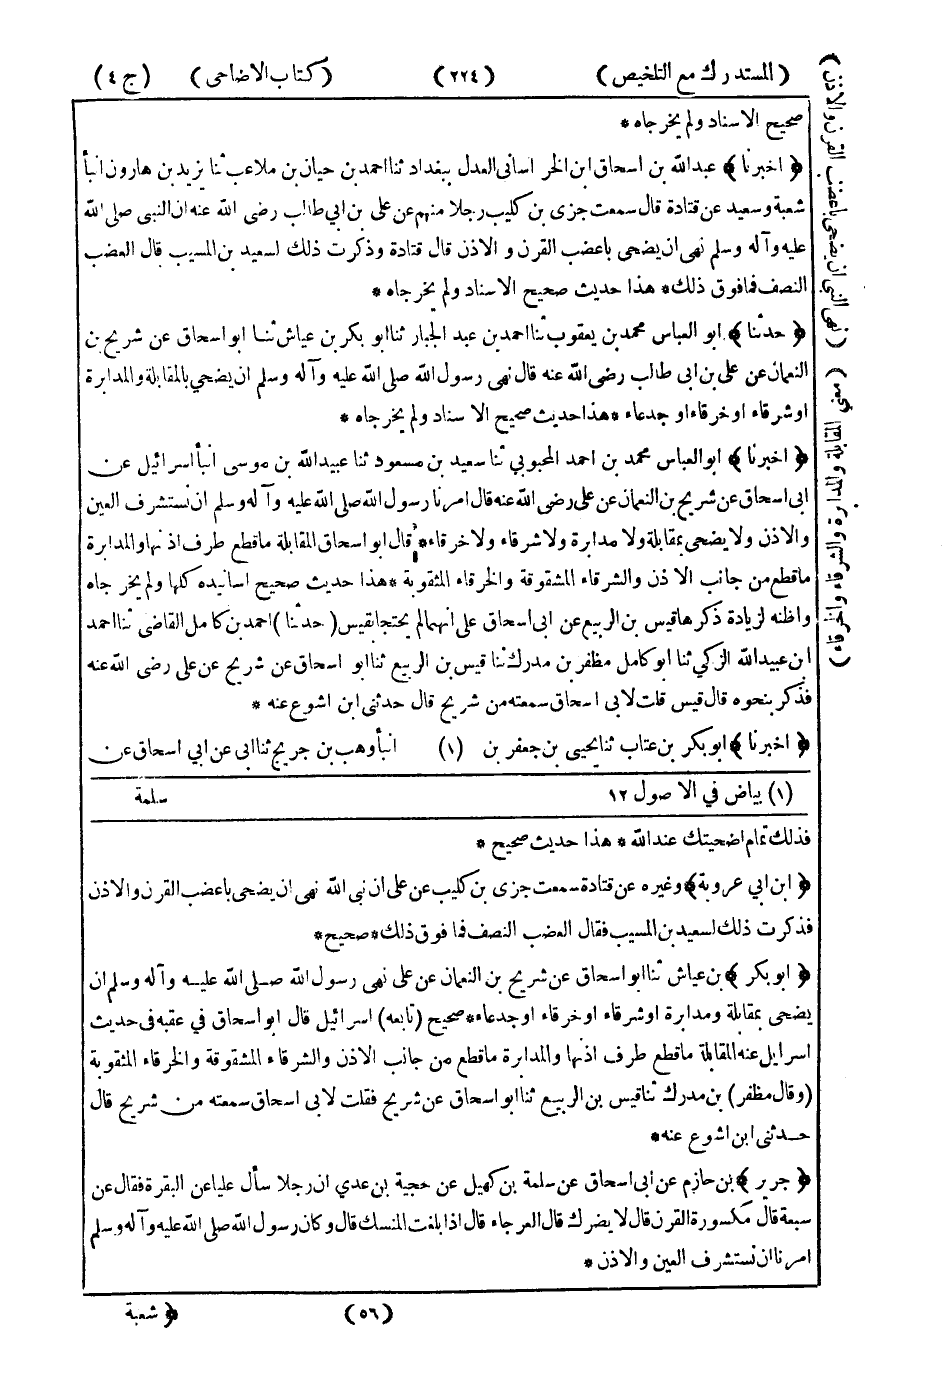 (المستدرك مع التلخيص) (٢٢٤) (كتاب الاضاحى) (ج ٤)
صحيح الاسناد ولم يخرجاه *
﴿ اخبرنا ﴾ عبدالله بن اسحاق ابن الخراسانى العدل ببغداد ثنا احمد بن حيان بن ملاعب ثنا يزيد بن هارون انبأ
شعبة وسعيد عن قتادة قال سمعت جزى بن كليب رجلا منهم عن على بن ابي طالب رضى الله عنه ان النبى صلى الله
عليه وآله وسلم نهى ان يضحى باعضب القرن و الاذن قال قتادة وذكرت ذلك لسعيد بن المسيب قال العضب
النصف فمافوق ذلك * هذا حديث صحيح الاسناد ولم يخرجاه *
﴿ حدثنا ﴾ ابو العباس محمد بن يعقوب ثنا احمد بن عبد الجبار ثنا ابو بكر بن عياش ثنا ابو اسحاق عن شريح بن
النعمان عن على بن ابى طالب رضى الله عنه قال نهى رسول الله صلى الله عليه وآله وسلم ان يضحي بالمقابلة والمدابرة
اوشرقاء اوخرقاء او جدعاء * هذا حديث صحيح الاسناد ولم يخرجاه *
﴿ اخبرنا ﴾ ابوالعباس محمد بن احمد المحبوبي ثنا سعيد بن مسعود ثنا عبيدالله بن موسى انبأ اسرائيل عن
ابى اسحاق عن شريح بن النعمان عن على رضى الله عنه قال امرنا رسول الله صلى الله عليه وآله وسلم ان نستشرف العين
والاذن ولا يضحى بمقابلة ولا مدابرة ولا شرقاء ولا خرقاء * قال ابو اسحاق المقابلة ماقطع طرف اذنها والمدابرة
ماقطع من جانب الاذن والشرقاء المشقوقة والخرقاء المثقوبة * هذا حديث صحيح اسانيده كلها ولم يخرجاه
واظنه لزيادة ذكرها قيس بن الربيع عن ابى اسحاق على انهما لم يحتجا بقيس (حدثنا) احمد بن كامل القاضى ثنا احمد
ابن عبيدالله الزكي ثنا ابو كامل مظفر بن مدرك ثنا قيس بن الربيع ثنا ابو اسحاق عن شريح عن على رضى الله عنه
فذكر بنحوه قال قيس قلت لابى اسحاق سمعته من شريح قال حدثنى ابن اشوع عنه *
﴿ اخبرنا ﴾ ابوبكر بن عتاب ثنا يحيى بن جعفر بن (١) انبأ وهب بن جريج ثنا ابى عن ابي اسحاق عن
(١) بياض في الاصول ١٢
سلمة
فذلك تمام اضحيتك عندالله * هذا حديث صحيح *
﴿ ابن ابي عروبة ﴾ وغيره عن قتادة سمعت جزى بن كليب عن على ان نبى الله نهى ان يضحى باعضب القرن والاذن
فذكرت ذلك لسعيد بن المسيب فقال العضب النصف فما فوق ذلك * صحيح *
﴿ ابو بكر ﴾ بن عياش ثنا ابو اسحاق عن شريح بن النعمان عن على نهى رسول الله صلى الله عليه وآله وسلم ان
يضحى بمقابلة ومدابرة اوشرقاء اوخرقاء اوجدعاء * صحيح (تابعه) اسرائيل قال ابو اسحاق في عقبه فى حديث
اسرايل عنه المقابلة ماقطع طرف اذنها والمدابرة ماقطع من جانب الاذن والشرقاء المشقوقة والخرقاء المثقوبة
(وقال مظفر) بن مدرك ثنا قيس بن الربيع ثنا ابو اسحاق عن شريح فقلت لابى اسحاق سمعته من شريح قال
حدثنى ابن اشوع عنه *
﴿ جرير ﴾ بن حازم عن ابى اسحاق عن سلمة بن كهيل عن حجية بن عدي ان رجلا سأل عليا عن البقرة فقال عن
سبعة قال مكسورة القرن قال لا يضرك قال العرجاء قال اذا بلغت المنسك قال وكان رسول الله صلى الله عليه وآله وسلم
امرنا ان نستشرف العين والاذن *
(٥٦)
﴿ شعبة
(نهى النبي ان يضحى باعضب القرن والاذن)
المقابلة والمدابرة والشرقاء والخرقاء)